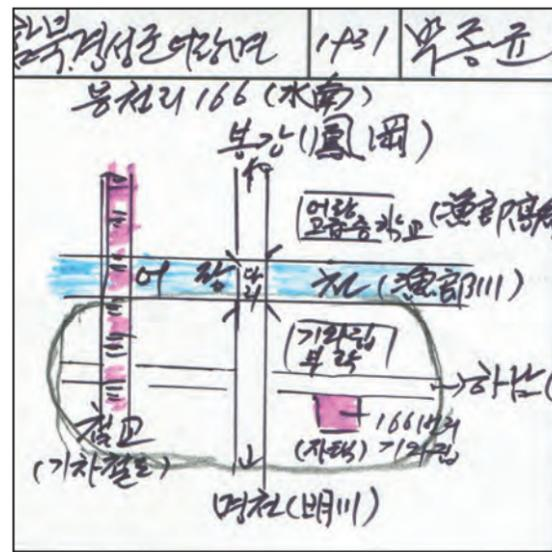 함북 경성군 어랑면 1931 박종윤
용천리 166 (水南)
봉강 (鳳岡)
어랑
고급중학교 (漁郞高
어 랑 다리 천 (漁郞川)
기와립
부락
→ 하남 (
철교
(기차철도)
166번지
(자택) 기와립
명천 (明川)